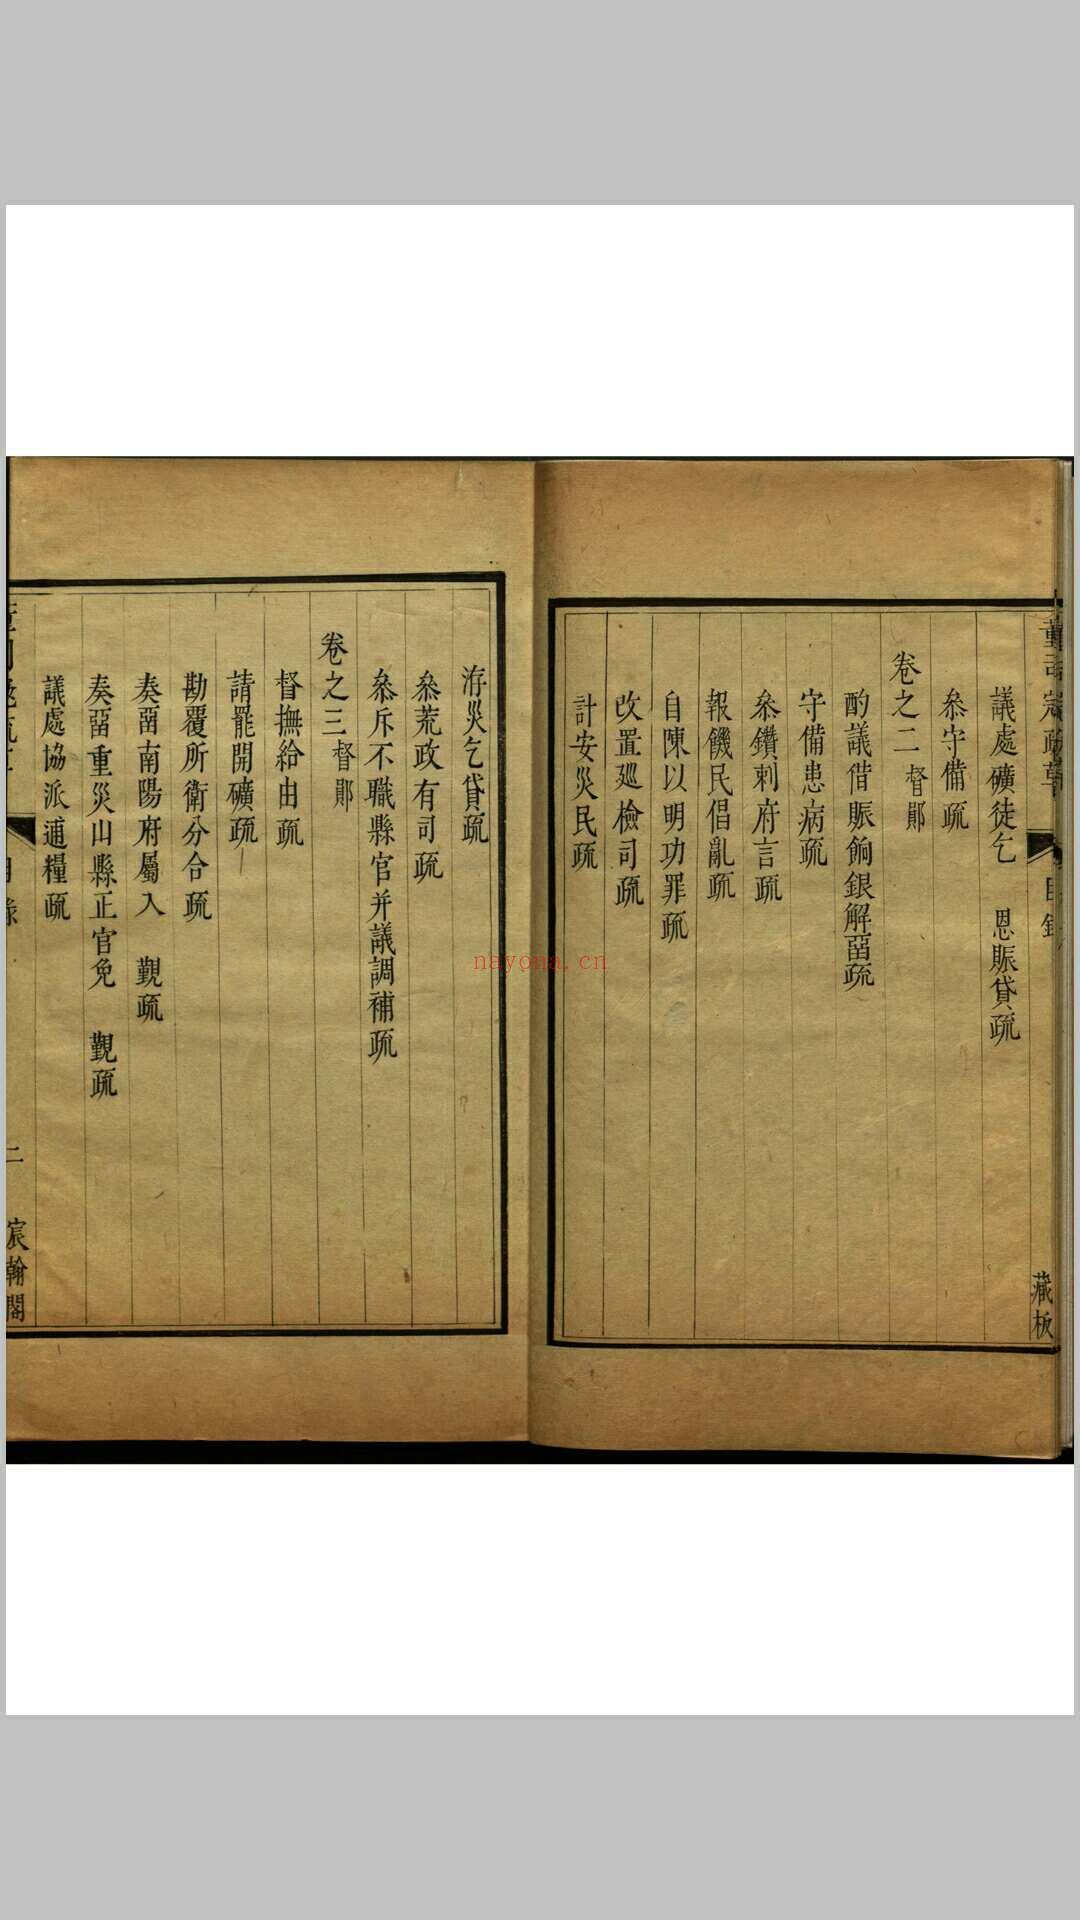 議處礦徒乞　恩賑貸疏
叅守備疏
卷之二 督鄖
酌議借賑餉銀解畱疏
守備患病疏
叅鑽刺府言疏
報饑民倡亂疏
自陳以明功罪疏
改置廵檢司疏
計安災民疏
藏板
洊災乞貸疏
叅荒政有司疏
叅斥不職縣官并議調補疏
卷之三 督鄖
督撫給由疏
請罷開礦疏
勘覆所衛分合疏
奏畱南陽府屬入　覲疏
奏畱重災山縣正官免　覲疏
議處協派逋糧疏
二
宸翰閣
nayona.cn